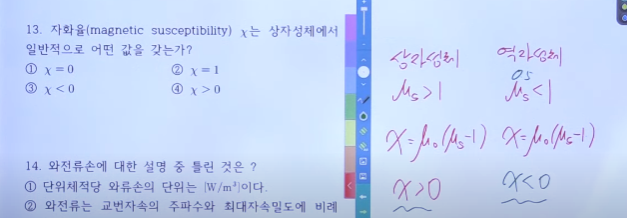 13. 자화율(magnetic susceptibility) χ는 상자성체에서
일반적으로 어떤 값을 갖는가?
① χ = 0 ② χ = 1
③ χ < 0 ④ χ > 0
14. 와전류손에 대한 설명 중 틀린 것은 ?
① 단위체적당 와류손의 단위는 [W/m³]이다.
② 와전류는 교번자속의 주파수와 최대자속밀도에 비례
상자성체 역자성체
μs > 1 μs < 1
χ = μ₀(μs-1) χ = μ₀(μs-1)
χ > 0 χ < 0